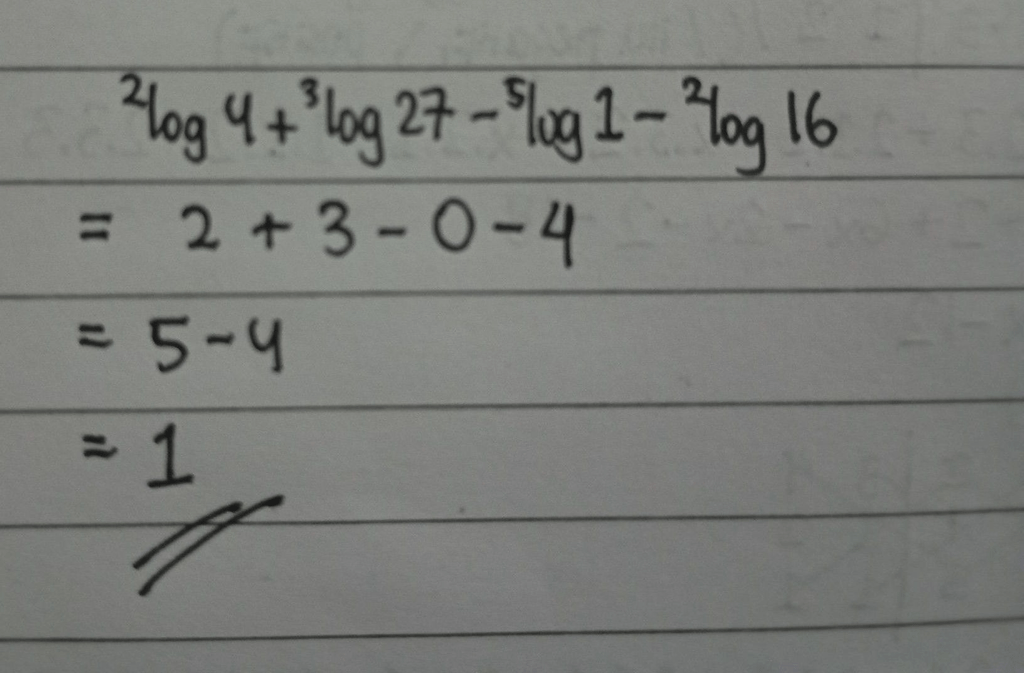 ²log 4 + ³log 27 - ⁵log 1 - ²log 16
= 2 + 3 - 0 - 4
= 5 - 4
= 1